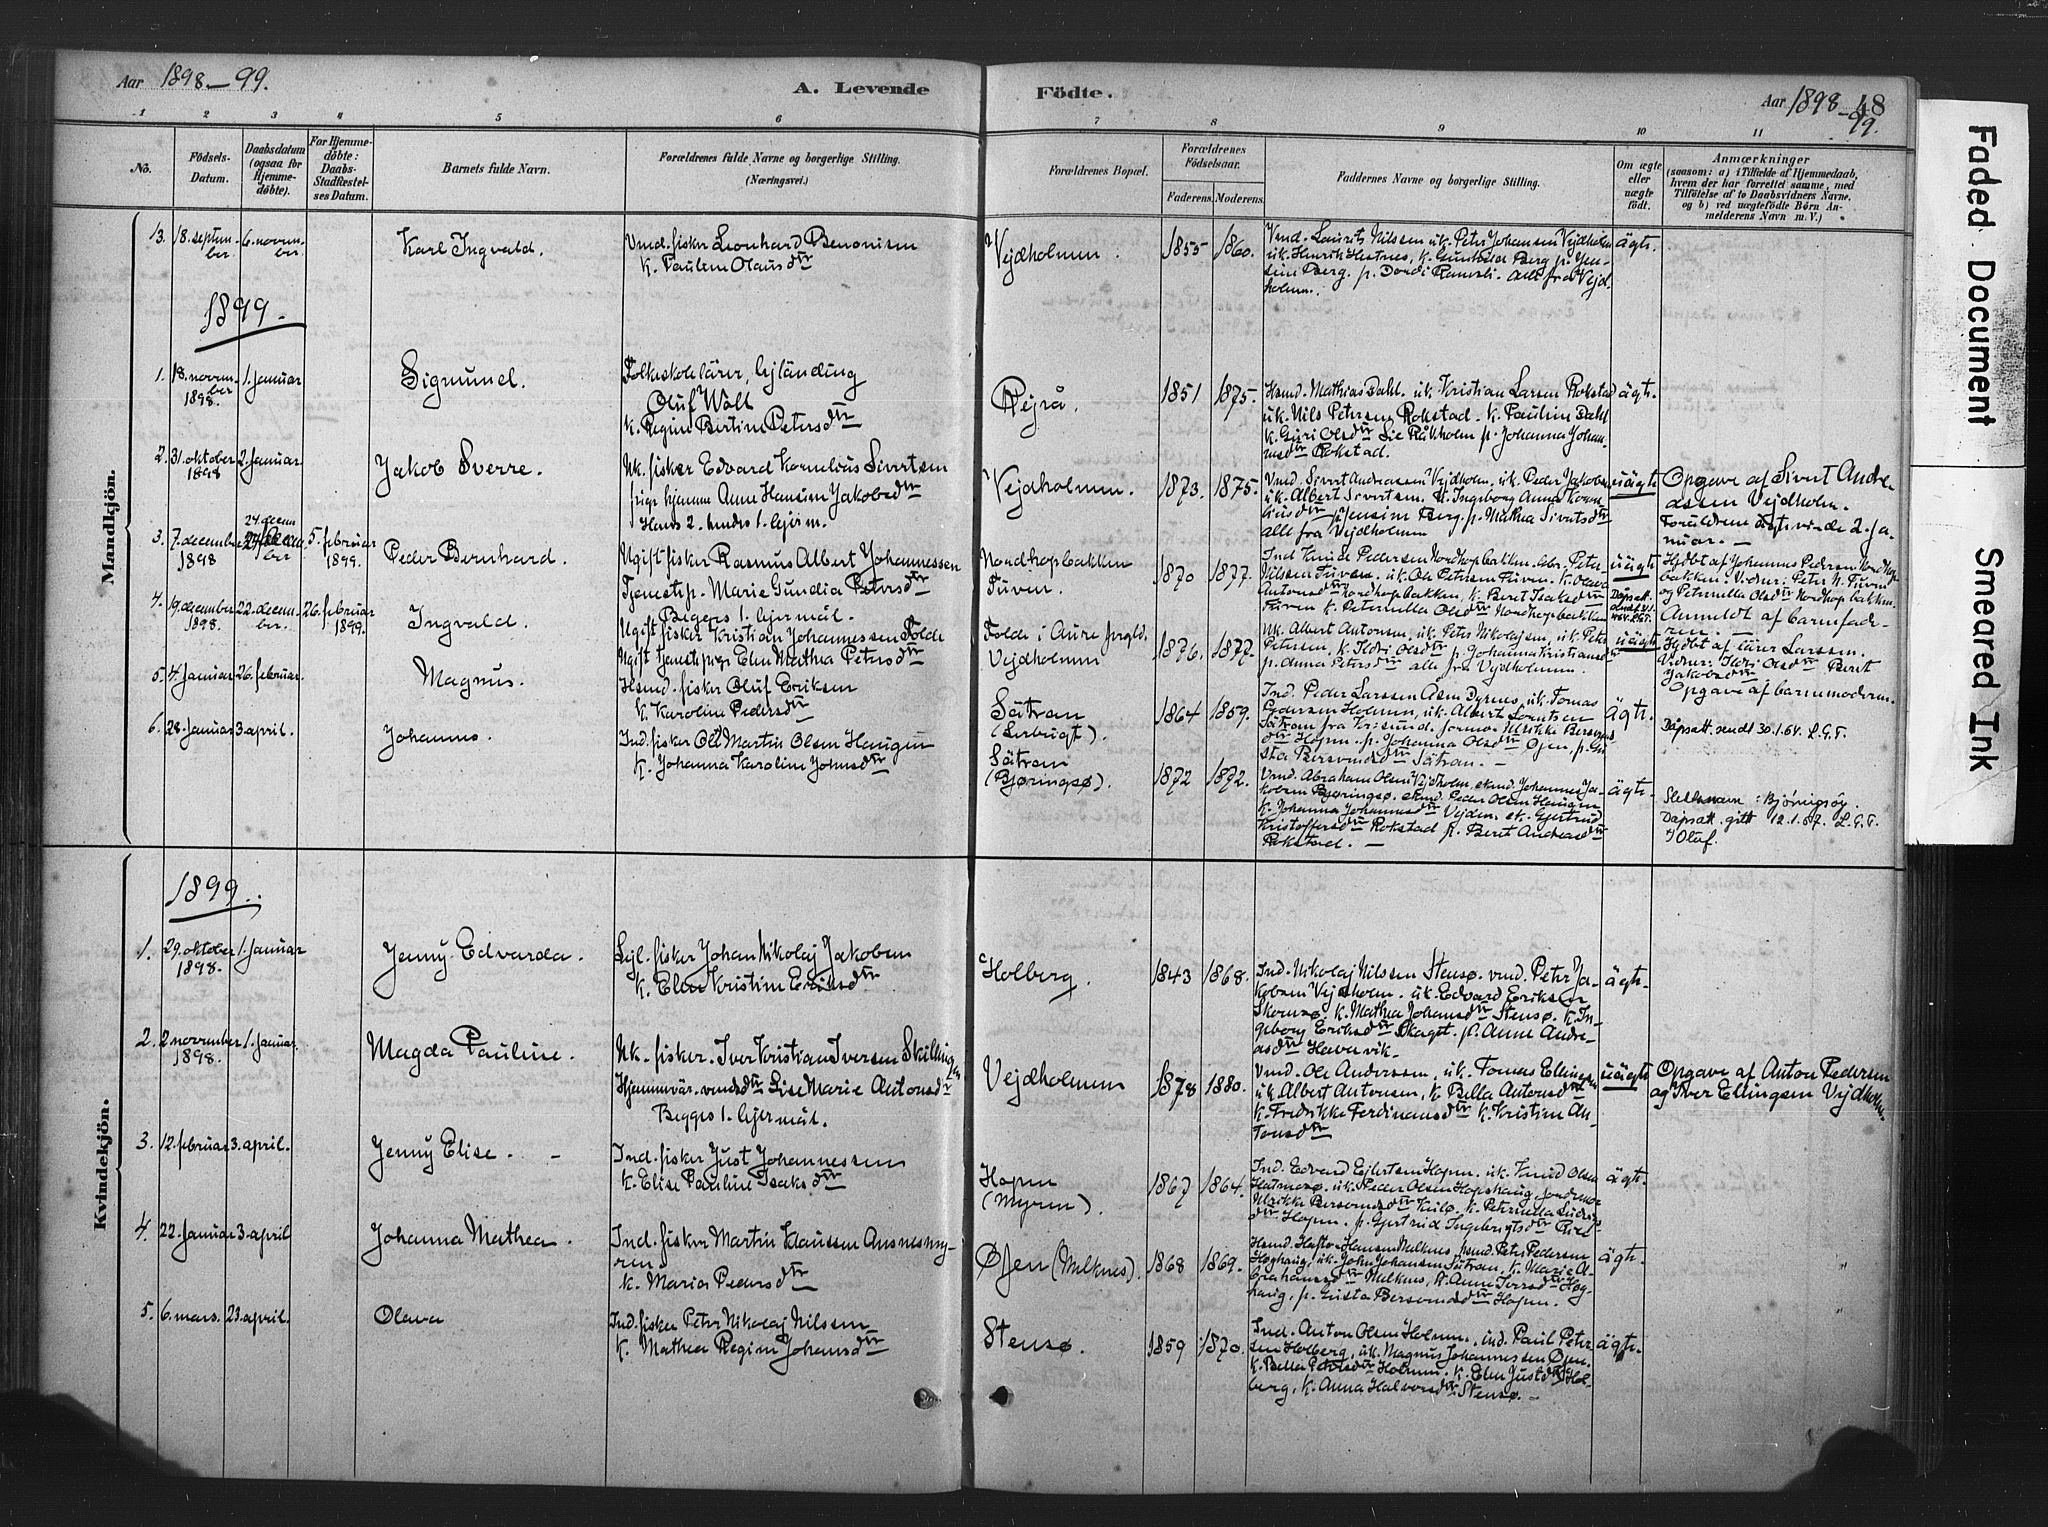 Aar 1898-99.
A. Levende Födte.
Aar 1898-99.
48
1 2 3 4 5 6 7 8 9 10 11
No.
Födsels-Datum.
Daabsdatum (ogsaa for Hjemme-döbte).
For Hjemme-döbte: Daabs-Stadfæstel-ses Datum.
Barnets fulde Navn.
Forældrenes fulde Navne og borgerlige Stilling.
(Næringsvei.)
Forældrenes Bopæl.
Forældrenes Födselsaar.
Faderens. Moderens.
Faddernes Navne og borgerlige Stilling.
Om ægte eller uægte födt.
Anmærkninger
(saasom: a) i Tilfælde af Hjemmedaab,
hvem der har forrettet samme, med
Tilföielse af to Daabsvidners Navne,
og b) ved uægtefödte Börn An-
melderens Navn m. V.)
Mandkjön.
13. 18. septem-ber 6. novem-ber. Karl Ingvald.
Vmd. fisker Leonhard Benonisen
k. Pauline Olausdtr
Vejdholmen. 1855 1860.
Vmd. Laurits Nilssen uk. Peter Johansen Vejdholm
uk. Henrik Hestnes, k. Gunhild Berg p. Jen-
sine Berg. p. Dordi Ramsli. alle fra Vejd-
holm.
ägte.
1899.
1. 18. novem-ber 1898. 1. januar Sigmund.
Folkeskolelärer, kjländing
Oluf Woll
k. Regine Bertine Petersdtr
Rejrå. 1851 1875.
Hsmd. Mathias Dahl. uk. Kristian Larsen Rokstad
uk. Nils Petersen Rokstad. k. Pauline Dahl
k. Guri Olsdtr Lie Råkholm p. Johanna Johan-
nesdtr Rokstad.
ägte.
2. 31. oktober 1898 2. januar. Jakob Sverre.
Uk. fisker Edvard Kornelius Sivertsen
pige hjemme Anne Hansine Jakobsdtr
Hans 2. hendes 1. lejerm.
Vejdholmen. 1873. 1875.
Vmd. Sivert Andreassen Vejdholm, uk. Peder Jakobsen
uk. Albert Sivertsen. k. Ingeborg Anna Korne-
liusdtr p. Jensine Berg. p. Mathea Sivertsdtr
alle fra Vejdholmen.
uägte
Opgave af Sivert Andre-
assen Vejdholm.
Foräldrene ägteviede 2. ja-
nuar. —
3. 7. december 1898 24. decem-ber 5. februar 1899. Peder Bernhard.
Ugift fisker Rasmus Albert Johannessen
Tjenestep. Marie Gundia Petersdtr
Begges 1. lejermål.
Nordhopbakken
Tuven. 1870 1877.
Ind. Knud Pedersen Nordhopbakken. Peter
Nilssen Tuven. uk. Ole Petersen Tuven. k. Oline
Antonsdtr Nordhopbakken, k. Beret Isaksdtr
Tuven k. Peternella Olsdtr Nordhopbakken
uägte
Dåpsatt.
Hjdbt af Johannes Pedersen Nordhop-
bakken. Vidner: Peter N. Tuven
og Peternella Olsdtr Nordhopbakken.
Anmeldt af barnefad-
ren. —
4. 19. december 1898. 22. decem-ber. 26. februar 1899. Ingvald.
Ugift fisker Kristian Johannessen Folde
Ugift tjenestepige Elen Mathea Petersdtr
Folde i Aure prgld.
Vejdholmen 1876. 1877.
Uk. Albert Antonsen, uk. Peter Nikolajsen, uk. Peter
Petersen, k. Ildri Olsdtr p. Johanna Kristiansdtr
p. Anna Petersdtr alle fra Vejdholmen.
uägte
Hjdbt af lärer Larssen.
Vidner: Ildri Olsdtr Beret
Jakobsdtr
Opgave af barnemoderen.
5. 4. januar 26. februar. Magnus.
Hsmd. fisker Oluf Eriksen
k. Karoline Pedersdtr
Sätran
(Lerbugt). 1864 1859.
Ind. Peder Larssen Dyrnes, uk. Tomas
Pedersen Holmen, uk. Albert Lorntsen
Sätran fra Krisund. jormo. Ulrikke Bersvens-
dtr Hopen. p. Johanna Olsdtr Ojen, p. Gu-
sta Bersvendsdtr Sätran. —
ägte.
Dåpsatt. sendt 30.1.64. L.G.T.
6. 28. januar 3. april. Johannes.
Ind. fisker Ole Martin Olsen Haugen
k. Johanna Karoline Johnsdtr
Sätran
(Bjøringsø). 1872 1872.
Vmd. Abraham Olsen Vejdholm, ekmd. Johannes Ja-
kobsen Bjøringsø. ekmd. Peder Olsen Haugen
k. Johanna Johannesdtr Vejden. ek. Gjertrud
Kristoffersdtr Rokstad p. Beret Andreasdtr
Rokstad. —
ägte.
Slektsnavn: Björingsöy.
Dåpsatt. gitt 12.1.67. L.G.T.
Oluf.
Kvindekjön.
1899.
1. 29. oktober 1898. 1. januar Jenny Edvarda.
Sgl. fisker Johan Nikolaj Jakobsen
k. Elen Kristine Eriksdtr
Holberg. 1843 1868.
Ind. Nikolaj Nilssen Stensø. vmd. Peter Ja-
kobsen Vejdholm. uk. Edvard Eriksen
Skornsø. k. Mathea Johansdtr Stensø. k. In-
geborg Eriksdtr Skaget. p. Anne Andre-
asdtr Havervik.
ägte.
2. 2 november 1898. 1. januar. Magda Pauline.
Uk. fisker. Iver Kristian Iversen Skilling
Hjemmevär. vmdsdtr Lise Marie Antonsdtr
Begges 1. lejermål.
Vejdholmen 1878 1880.
Vmd. Ole Anderssen, uk. Tomas Ellingsen
uk. Albert Antonsen, k. Bella Antonsdtr
k. Fredrikke Ferdinansdtr k. Kristine An-
tonsdtr
uägte
Opgave af Anton Pedersen
og Iver Ellingsen Vejdholm.
3. 12. februar 3. april. Jenny Elise. —
Ind. fisker Just Johannessen
k. Elise Pauline Isaksdtr
Hopen
(Myren). 1867 1864.
Ind. Edvard Eilertsen Hopen. uk. Knud Olsen
uk. Peder Olsen Hopshaug, jordmor
Ulrikke Bersvendsdtr Kulø. k. Peternella Ludvigs-
dtr Hopen. p. Gjertrud Ingebrigtsdtr
ägte.
4. 22. januar 3. april Johanna Mathea.
Ind. fisker Martin Klaussen Ausnesmy-
ren
k. Maria Pedersdtr
Øjen (Mulknes). 1868 1869.
Hsmd. Hafto Hansen Mulknes, hsmd. Peter Pedersen
Höghaug, uk. John Johansen Sätran, k. Marie A-
brahamsdtr Mulknes, k. Anne Iversdtr Høg-
haug, p. Gusta Bersvendsdtr Hopen.
ägte.
5. 6. mars. 23. april. Olava
Ind. fisker Peter Nikolaj Nilssen
k. Mathea Regine Johansdtr
Stensø. 1859 1870.
Ind. Anton Olsen Holmen. ind. Paul Peter-
sen Holberg, uk. Magnus Johannessen Øjen.
k. Bella Petersdtr Holmen. k. Elen Justdtr Hol-
berg, k. Anna Halvorsdtr Stensø. —
ägte.
Faded Document
Smeared Ink